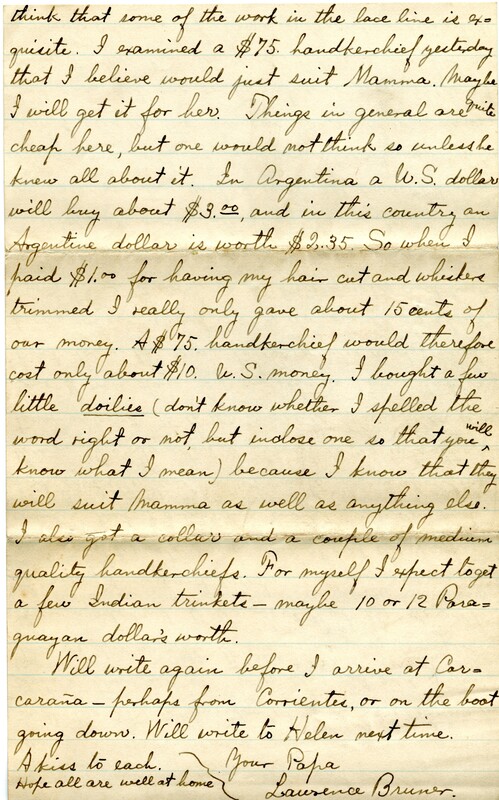 think that some of the work in the lace line is ex=
quisite. I examined a $75. handkerchief yesterday
that I believe would just suit Mamma. Maybe
I will get it for her. Things in general are quite
cheap here, but one would not think so unless he
knew all about it. In Argentina a U.S. dollar
will buy about $3.00, and in this country an
Argentine dollar is worth $2.35. So when I
paid $1.00 for having my hair cut and whiskers
trimmed I really only gave about 15 cents of
our money. A $75. handkerchief would therefore
cost only about $10. U.S. money. I bought a few
little doilies (don't know whether I spelled the
word right or not, but inclose one so that you will
know what I mean) because I know that they
will suit Mamma as well as anything else.
I also got a collar and a couple of medium
quality handkerchiefs. For myself I expect to get
a few Indian trinkets – maybe 10 or 12 Para=
guayan dollar's worth.
Will write again before I arrive at Car=
caraña – perhaps from Corrientes, or on the boat
going down. Will write to Helen next time.
A kiss to each. Your Papa
Hope all are well at home Lawrence Bruner.